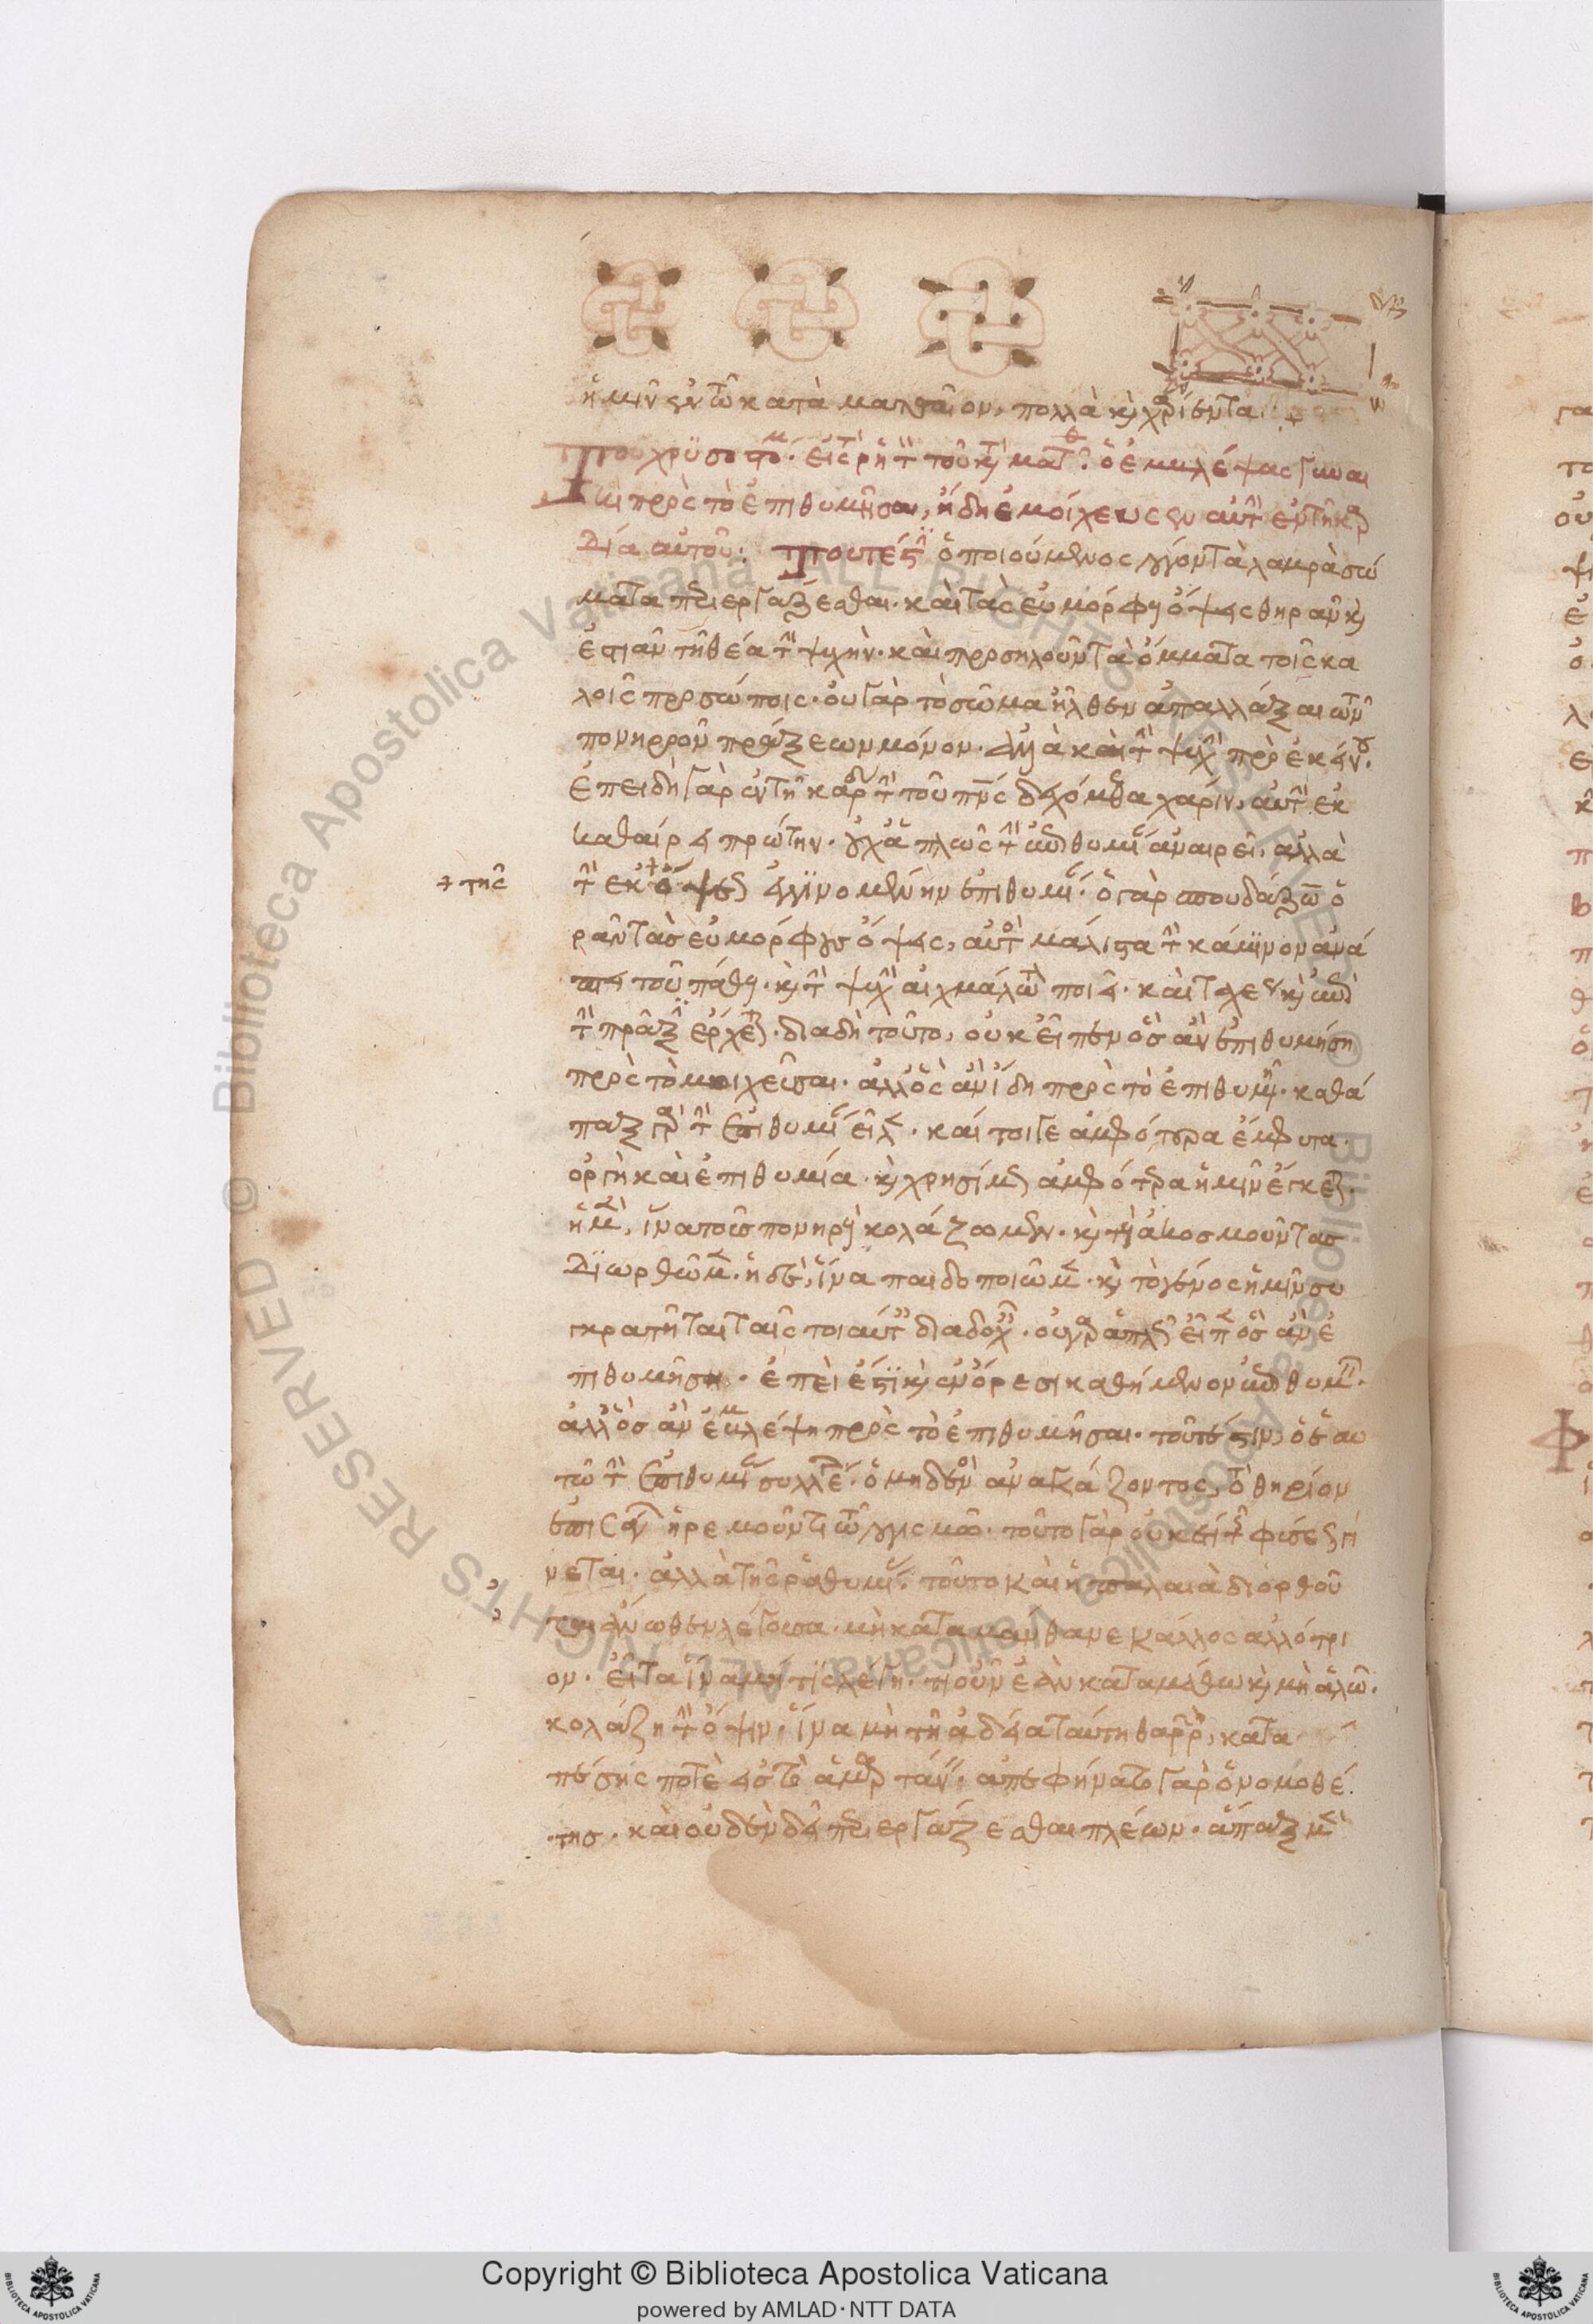 ἡμῖν ἐν τῶ κατὰ ματθαῖον, πολλὰ κ χρήσιμα
Τοῦ χρυσοστομ· εἰς τὸ ῥητ τοῦ κατ ματθ· ὁ ἐμβλέψας γυναι
κὶ πρὸς τὸ ἐπιθυμῆσαι, ἤδη ἐμοίχευσεν αὐτ ἐν τῆ καρ
δία αὐτοῦ: Τουτέστιν ὁ ποιούμενος ἔργον τὰ λαμπρὰ σώ
ματα περιεργάζεσθαι· καὶ τὰς εὐμόρφους ὄψεις θηρᾶν κ
ἑστιᾶν τῆ θέα τὴν ψυχήν· καὶ προσηλοῦν τὰ ὄμματα τοῖς κα
λοῖς προσώποις· οὐ γὰρ τὸ σῶμα ἦλθεν ἀπαλλάξαι τῶν
πονηρῶν πράξεων μόνον· ἀλλὰ καὶ τὴν ψυχὴν πρὸ ἐκείνου·
ἐπειδὴ γὰρ ἐν τῆ καρδία τὴν τοῦ πνς δεχόμεθα χάριν, αὐτὴν ἐκ
καθαίρει πρώτην· οὐχ ἁπλῶς τὴν ἐπιθυμίαν ἀναιρεῖ, ἀλλὰ
τὴν ἐκ ὄψεως ἐγγινομένην ἐπιθυμίαν· ὁ γὰρ σπουδάζων ὁ
+ τῆς
ρᾶν τὰς εὐμόρφους ὄψεις, αὐτὸς μάλιστα τὴν κάμινον ἀνά
πτει τοῦ πάθους· κ τὴν ψυχὴν αἰχμάλωτον ποιεῖ· καὶ ταχέως κ ἐπὶ
τὴν πρᾶξιν ἔρχεται· διαδὴ τοῦτο, οὐκ εἶπεν ὃς ἂν ἐπιθυμήση
πρὸς τὸ μοιχεῦσαι· ἀλλ' ὃς ἂν ἴδη πρὸς τὸ ἐπιθυμῆσαι· καθά
παξ γὰρ τὴν ἐπιθυμίαν
ὀργὴ καὶ ἐπιθυμία· κ χρησίμως ἀμφότερα ἡμῖν ἔγκειται·
ἡ μὲν, ἵνα τοὺς πονηροὺς κολάζωμεν· κ τοὺς ἀκοσμοῦντας
διωρθῶμεν· ἡ δὲ, ἵνα παιδοποιῶμεν· κ τὸ γένος ἡμῖν συ
γκρατῆται ταῖς τοιαύταις διαδοχαῖς· οὐ γὰρ ἁπλῶς εἶπεν ὃς ἂν ἐ
πιθυμήση· ἐπεὶ ἔστι κ ἐν ὄρεσι καθήμενον ἐπιθυμεῖν·
ἀλλ' ὃς ἂν ἐμβλέψη πρὸς τὸ ἐπιθυμῆσαι· τοῦτέστιν, ὁ ἑαυ
τῶ τὴν ἐπιθυμίαν συλλέγων· ὁ μηδενὸς ἀναγκάζοντος, τὸ θηρίον
ἐπεισάγων ἠρεμοῦντι τῶ λογισμῶ· τοῦτο γὰρ οὐκέτι τῆς φύσεως γί
νεται· ἀλλὰ τῆς ῥαθυμίας· τοῦτο καὶ ἡ παλαιὰ διορθοῦ
ται ἄνωθεν λέγουσα· μὴ καταμάνθανε κάλλος ἀλλότρι
ον· εἶτα ἵνα μή τις λέγη· τί οὖν ἐὰν καταμάθω κ μὴ ἁλῶ·
κολάζει τὴν ὄψιν· ἵνα μὴ τῆ ἀδεία ταύτη θαρρῶν, κατα
πέσης ποτὲ εἰς τὸ ἁμαρτάνειν· ἀπεφήνατο γὰρ ὁ νομοθέ
της· καὶ οὐδὲν δεῖ περιεργάζεσθαι πλέων· ἅπαξ μὲν
Copyright © Biblioteca Apostolica Vaticana
powered by AMLAD·NTT DATA
© Biblioteca Apostolica Vaticana ALL RIGHTS RESERVED